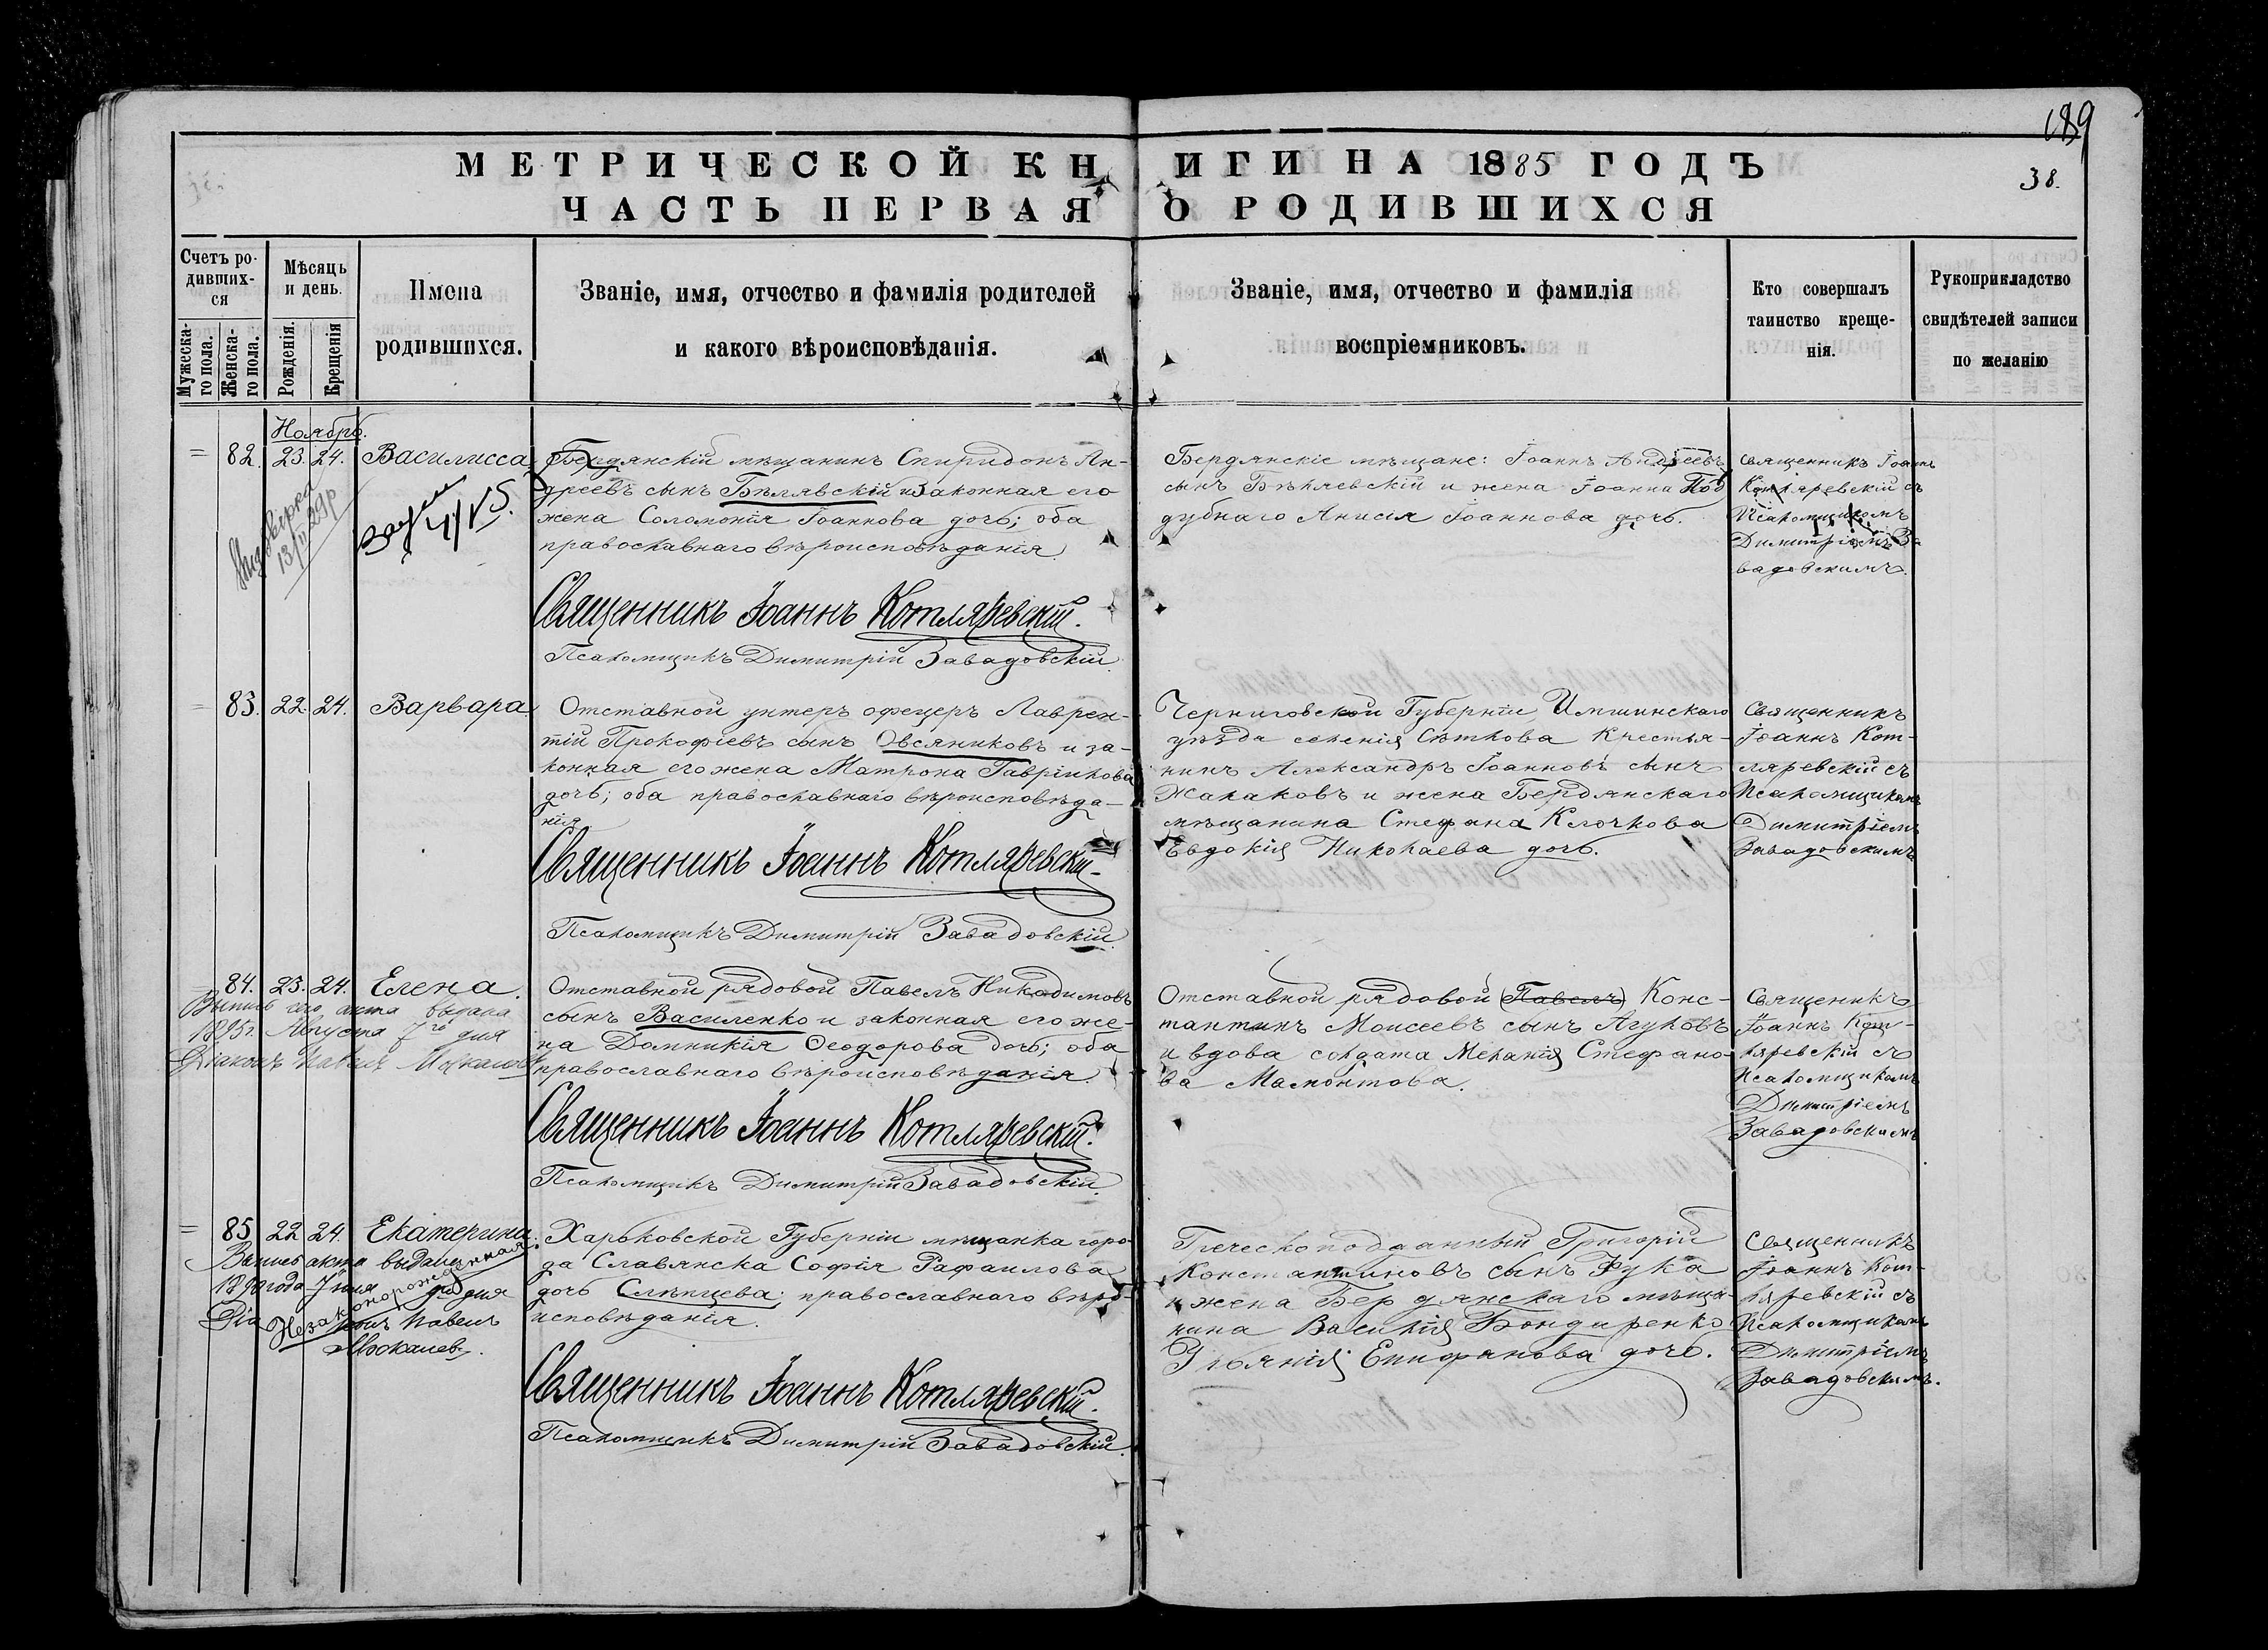 189
38.
МЕТРИЧЕСКОЙ КНИГИ НА 1885 ГОДЪ
ЧАСТЬ ПЕРВАЯ О РОДИВШИХСЯ
Счетъ ро-
дивших-
ся
Мужеска-
го пола.
Женска-
го пола.
Мѣсяць
и день.
Рожденія.
Крещенія
Имена
родившихся.
Званіе, имя, отчество и фамилія родителей
и какого вѣроисповѣданія.
Званіе, имя, отчество и фамилія
воспріемниковъ.
Кто совершалъ
таинство креще-
нія.
Рукоприкладство
свидѣтелей записи
по желанію
Ноябрь.
= 82. 23. 24. Василисса
Бердянскій мѣщанинъ Спиридонъ Ан-
дреевъ сынъ Бѣлявскій и законная его
жена Соломонія Іоаннова дочь; оба
православнаго вѣроисповѣданія
Священникъ Іоаннъ Котляревскій.
Псаломщикъ Димитрій Завадовскій.
Бердянскіе мѣщане: Іоаннъ Андреевъ
сынъ Бѣлявскій и жена Іоанна Под
дубнаго Анисія Іоаннова дочь.
Священникъ Іоаннъ
Котляревскій съ
Псаломщикомъ
Димитріемъ За
вадовскимъ.
= 83. 22. 24. Варвара
Отставной унтеръ офецеръ Лаврен-
тій Прокофіевъ сынъ Овсяниковъ и за-
конная его жена Матрона Гавріилова
дочь; оба православнаго вѣроисповѣда-
нія
Священникъ Іоаннъ Котляревскій.
Псаломщикъ Димитрій Завадовскій.
Черниговской Губерніи
уѣзда селенія Крестья-
нинъ Александръ Іоанновъ сынъ
и жена Бердянскаго
мѣщанина Стефана Клочкова
Евдокія Николаева дочь.
Священникъ
Іоаннъ Кот-
ляревскій съ
Псаломщикомъ
Димитріемъ
Завадовскимъ
84. 23. 24. Елена.
Выпись сего акта выдана
1895 г. Августа 7го дня
Діаконъ Павелъ
Отставной рядовой Павелъ Никодимовъ
сынъ Василенко и законная его же-
на Домникія Ѳеодорова дочь; оба
православнаго вѣроисповѣданія.
Священникъ Іоаннъ Котляревскій.
Псаломщикъ Димитрій Завадовскій.
Отставной рядовой (Павелъ) Конс-
тантинъ Моисеевъ сынъ
и вдова солдата Меланія Стефано-
ва Мамонтова.
Священикъ
Іоаннъ Кот-
ляревскій съ
Псаломщикомъ
Димитріемъ
Завадовскимъ
= 85 22 24. Екатерина
Незаконорожденная
Выпись акта выдана
года дня
Павелъ
Харьковской Губерніи мѣщанка горо-
да Славянска Софія Рафаилова
дочь Слѣпцева; православнаго вѣро-
исповѣданія.
Священникъ Іоаннъ Котляревскій.
Псаломщикъ Димитрій Завадовскій.
Греческоподданный Григорій
Константиновъ сынъ Фука
и жена Бердянскаго мѣща-
нина Василія Бондаренко
Ульянія Епифанова дочь.
Священникъ
Іоаннъ Кот-
ляревскій съ
Псаломщикомъ
Димитріемъ
Завадовскимъ.